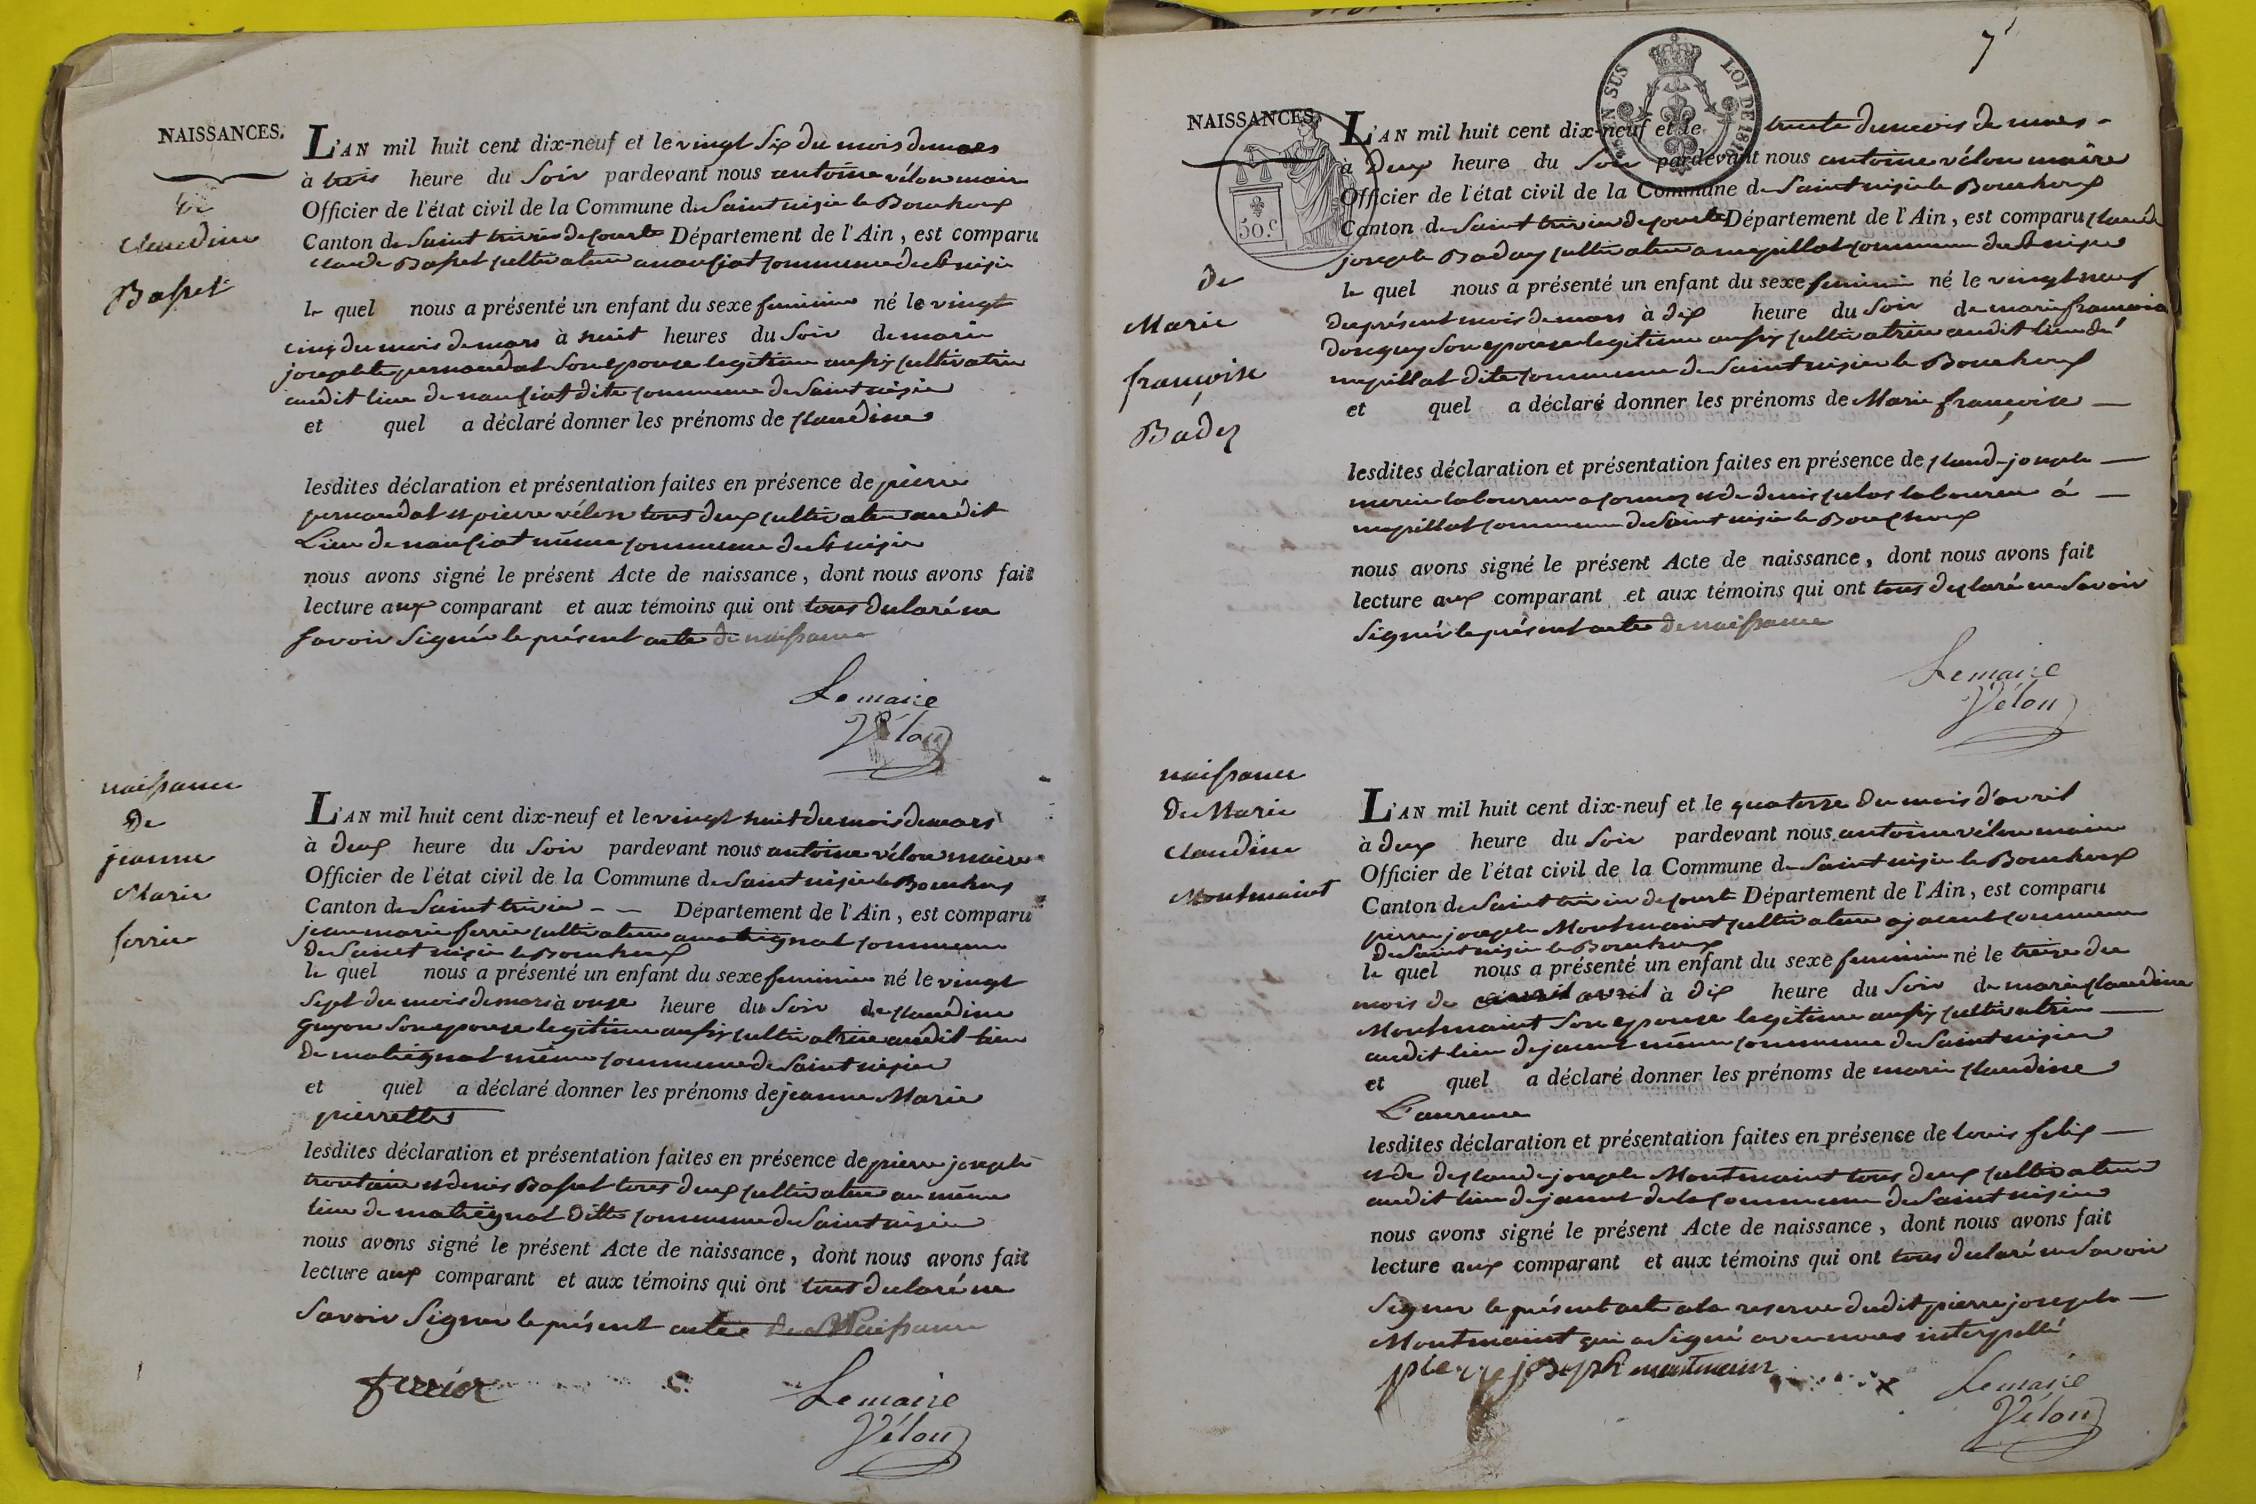 NAISSANCES.
de
claudine
Bassct
L'AN mil huit cent dix-neuf et le vingt six du mois de mars
à trois heure du Soir pardevant nous antoine vélon maire
Officier de l'état civil de la Commune de Saint nisier le Bouchoux
Canton de Saint trivier de Courte Département de l'Ain, est comparu
claude Basset cultivateur a commune de St nisier
le quel nous a présenté un enfant du sexe feminin né le vingt
cinq du mois de mars à huit heures du Soir de marie
josephte pernaudat Son epouse legitime aussy cultivatrice
audit lieu de dite commune de Saint nisier
et quel a déclaré donner les prénoms de claudine
lesdites déclaration et présentation faites en présence de pierre
pernaudat et pierre vélon tous deux cultivateur audit
Lieu de même commune de St nisier
nous avons signé le présent Acte de naissance, dont nous avons fait
lecture aux comparant et aux témoins qui ont tous declaré ne
Savoir Signér le présent acte de naissance
Lemaire
Vélon
naissance
de
jeanne
Marie
ferrier
L'AN mil huit cent dix-neuf et le vingt huit du mois de mars
à deux heure du Soir pardevant nous antoine vélon maire
Officier de l'état civil de la Commune de Saint nisier le Bouchoux
Canton de Saint trivier - - Département de l'Ain, est comparu
jean marie ferrier cultivateur a commune
de Saint nisier le Bouchoux
le quel nous a présenté un enfant du sexe feminin né le vingt
Sept du mois de mars à onze heure du Soir de claudine
guyon Son epouse legitime aussy cultivatrice audit lieu
de même commune de Saint nisier
et quel a déclaré donner les prénoms de jeanne Marie
pierrette
lesdites déclaration et présentation faites en présence de pierre joseph
et denis Basset tous deux cultivateur au même
lieu de ditte commune de Saint nisier
nous avons signé le présent Acte de naissance, dont nous avons fait
lecture aux comparant et aux témoins qui ont tous declaré ne
Savoir Signer le présent acte de Naissance
ferrier
Lemaire
Vélon
7
EN SUS LOI DE 1816
50.c
NAISSANCES.
de
Marie
françoise
Baday
L'AN mil huit cent dix-neuf et le trente du mois de mars -
à Deux heure du Soir pardevant nous antoine vélon maire
Officier de l'état civil de la Commune de Saint nisier le Bouchoux
Canton de Saint trivier de Courte Département de l'Ain, est comparu claude
joseph Baday cultivateur a mepillat commune de St nisier
le quel nous a présenté un enfant du sexe feminin né le vingt neuf
du présent mois de mars à dix heure du Soir de marie françoise
donguy Son epouse legitime aussy cultivatrice audit lieu de
mepillat dite commune de Saint nisier le Bouchoux
et quel a déclaré donner les prénoms de Marie françoise -
lesdites déclaration et présentation faites en présence de claud-joseph -
laboureur a et de denis laboureur á -
mepillat commune de Saint nisier le Bouchoux
nous avons signé le présent Acte de naissance, dont nous avons fait
lecture aux comparant et aux témoins qui ont tous declaré ne Savoir
Signér le présent acte de naissance
Lemaire
Vélon
naissance
de Marie
claudine
Montmaint
L'AN mil huit cent dix-neuf et le quatorze du mois d'avril
à deux heure du Soir pardevant nous antoine vélon maire
Officier de l'état civil de la Commune de Saint nisier le Bouchoux
Canton de Saint trivier de Courte Département de l'Ain, est comparu
pierre joseph Montmaint cultivateur a commune
de Saint nisier le Bouchoux
le quel nous a présenté un enfant du sexe feminin né le treize du
mois de avril à dix heure du Soir de marie claudine
Montmaint Son epouse legitime aussy cultivatrice -
audit lieu de même commune de Saint nisier
et quel a déclaré donner les prénoms de marie claudine
Laurence
lesdites déclaration et présentation faites en présence de louis felix -
et de claude joseph Montmaint tous deux cultivateur
audit lieu de de la commune de Saint nisier
nous avons signé le présent Acte de naissance, dont nous avons fait
lecture aux comparant et aux témoins qui ont tous declaré ne Savoir
Signer le présent acte a la reserve dudit pierre joseph -
Montmaint qui a Signé avec nous interpellé
pierre joseph montmain
Lemaire
Vélon